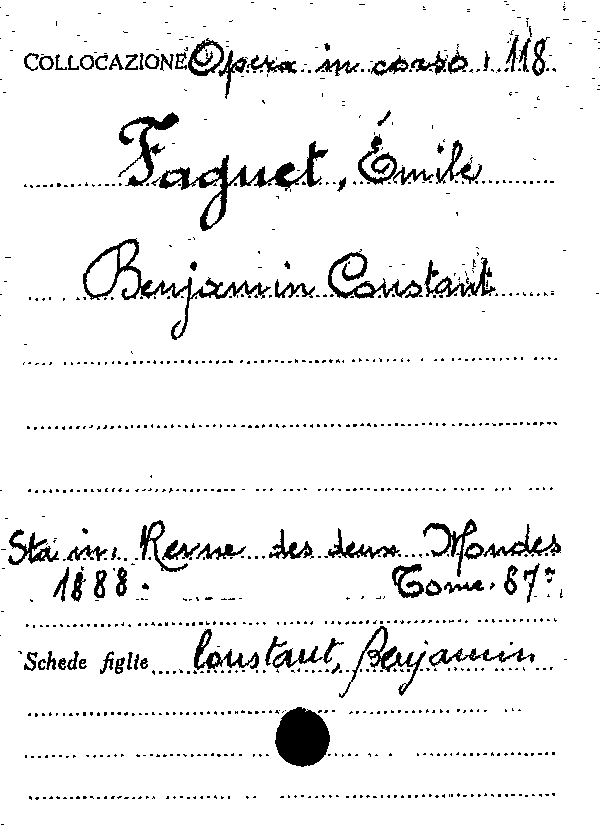 COLLOCAZIONE Opera in corso 118
Faguet, Émile
Benjamin Constant
Sta in: Revue des deux Mondes
1888. Tome. 87º
Schede figlie Constant, Benjamin